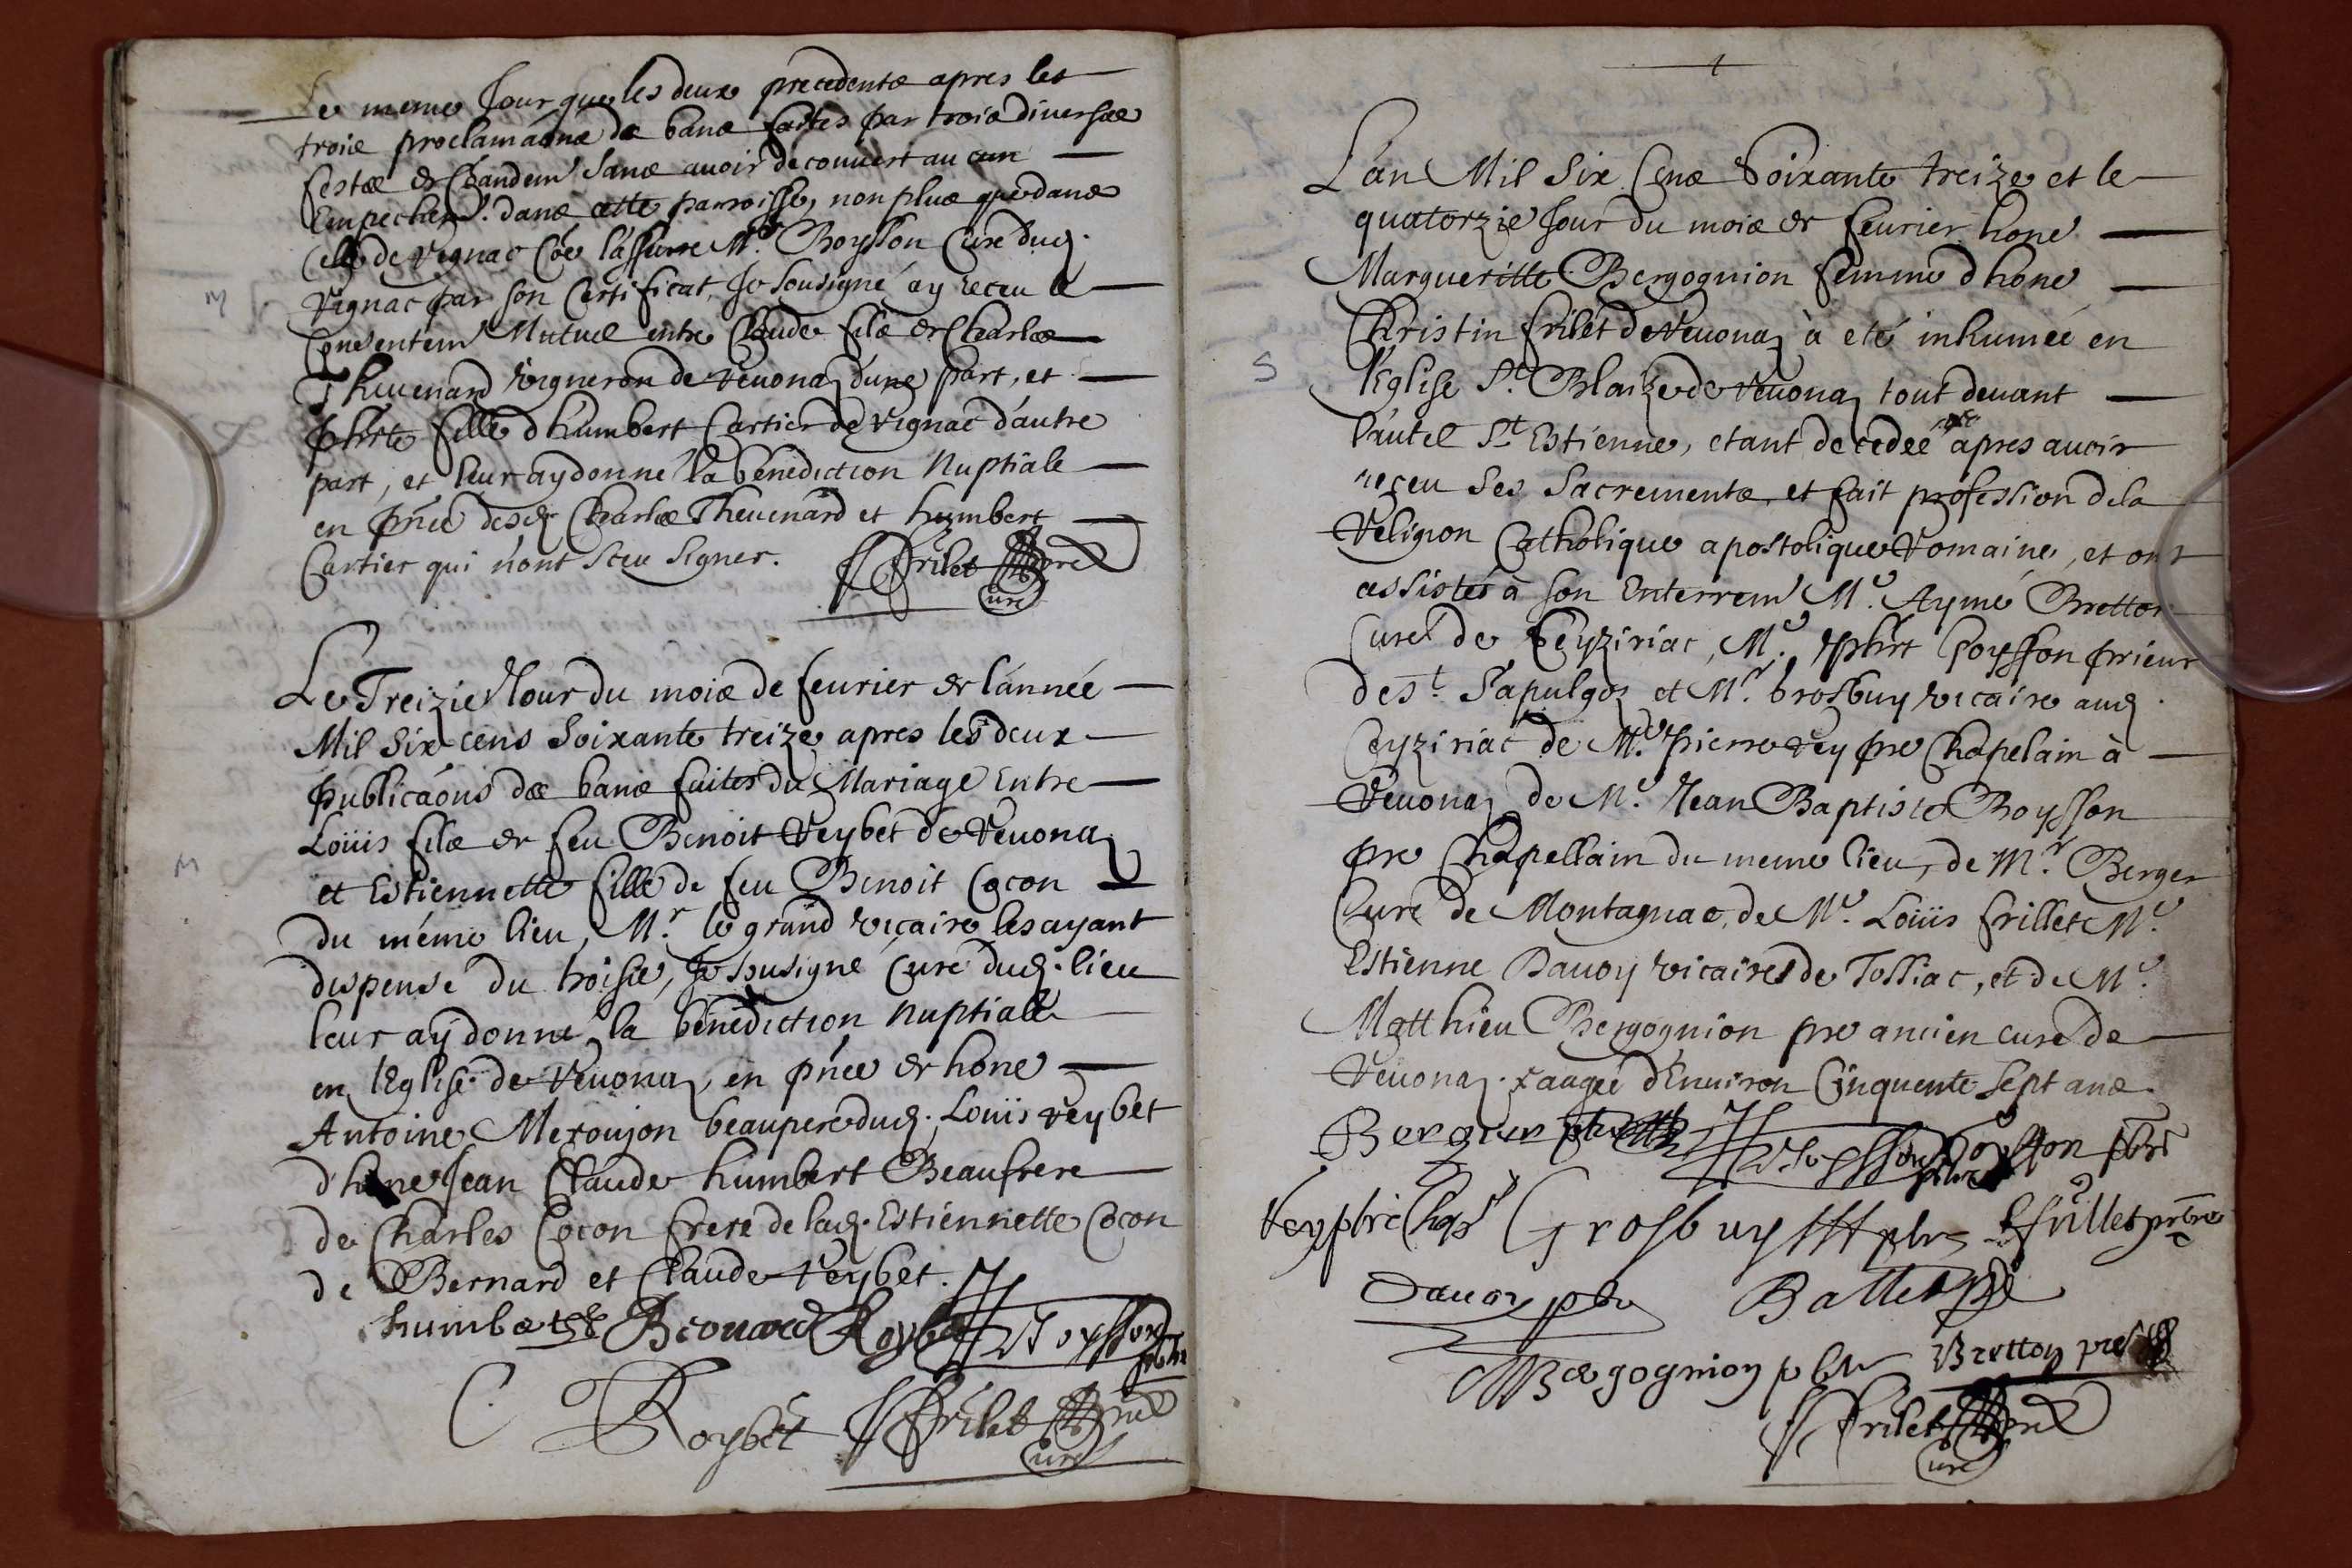 Le meme Jour que les deux precedents apres les
trois proclamaons de bans faites par trois diverses
festes et Chandem sans avoir decouvert aucun
Empechem. dans cette parroisse, non plus que dans
Celle de Vignac Coe l'assurre Mre Boysson Curé dud.
Vignac par son Certificat, Je sousigné ay receu le
Consentem Mutuel entre Claude fils de Charles
Thevenard vigneron de Revonaz d'une part, et
Phrte fille d'humbert Cartier de vignac d'autre
part, et leur ay donné la bénédiction Nuptiale
en pnce desd. Charles Thevenard et humbert
Cartier qui n'ont sceu signer. Frilet pre
Curé
M
Le Treizie Jour du mois de fevrier de l'année
Mil Six cens Soixante treize apres les deux
publicaons des bans faites du Mariage Entre
Loüis fils de feu Benoit Reybet de Revonaz
et Estiennette fille de feu Benoit Cocon
du méme lieu, Mr le grand vicaire les ayant
dispensé du troisie, Je sousigné Curé dud. lieu
leur aÿ donné la bénédiction Nuptiale
en l'Eglise de Revonaz, en pnce de hone
Antoine Meroujon beaupere dud. Loüis reybet
d'hone Jean Claude humbert Beaufrere
de Charles Cocon frere de lad. Estiennette Cocon
de Bernard et Claude Reybet.
humbert Bernard Roybet Boysson
pbre
C Roybét Frilet pre
Curé
M
L'an Mil Six Cens Soixante treize et le
quatorzie Jour du mois de fevrier hone
Margueritte Bergognion femme d'hone
Christin frilét de Revonaz à eté inhumée en
l'Eglise St. Blaize de Revonaz tout devant
l'autel St Estienne, etant decedée apres avoir
receu Ses Sacrements, et fait profession de la
Religion Catholique apostolique Romaine, et ont
assistés à son Enterrem Me. Aymé Bretton
Curé de Ceyziriac, Me. phrt Boysson prieur
de St. Sapulgoz et Mr. brosbuy vicaire aud.
Ceyziriac de Me. Pierre Rey pre Chapelain à
Revonaz de Me. Jean Baptiste Boysson
pre Chapellain du meme lieu, de Mr. Berger
Curé de Montagnac, de Me. Loüis frillet Me.
Estienne Davoy vicaires de Tossiac, et de Me.
Matthieu Bergognion pre ancien curé de
Revonaz. aagée d'Environ Cinquente Sept ans.
S
Berger Boysson Boysson pbre
Rey pbre Chap Grosbuy pbre L frillet prbre
Davoy pbr Ballet
M Bergognion pbre Bretton pre
Frilet pre
Curé